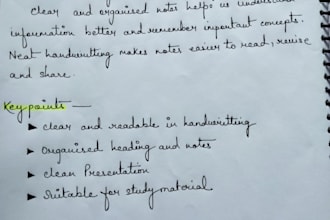 clear and organised notes helps us understand
information better and remember important concepts.
Neat handwriting makes notes easier to read, revise
and share.
Key points —
➤ clear and readable in handwriting
➤ Organised heading and notes
➤ clean Presentation
➤ Suitable for study material.